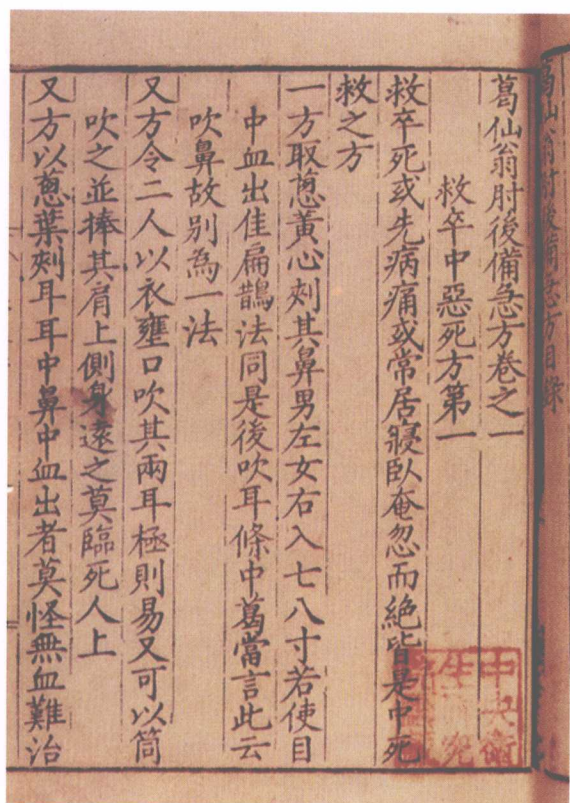 葛仙翁肘後備急方目録
葛仙翁肘後備急方卷之一
救卒中惡死方第一
救卒死或先病痛或常居寢臥奄忽而絶皆是中死
救之方
一方取葱黃心刾其鼻男左女右入七八寸若使目
中血出佳扁鵲法同是後吹耳條中葛當言此云
吹鼻故别為一法
又方令二人以衣壅口吹其兩耳極則易又可以筒
吹之並捧其肩上側身遠之莫臨死人上
又方以葱葉刾耳耳中鼻中血出者莫怪無血難治
中央衛
生究